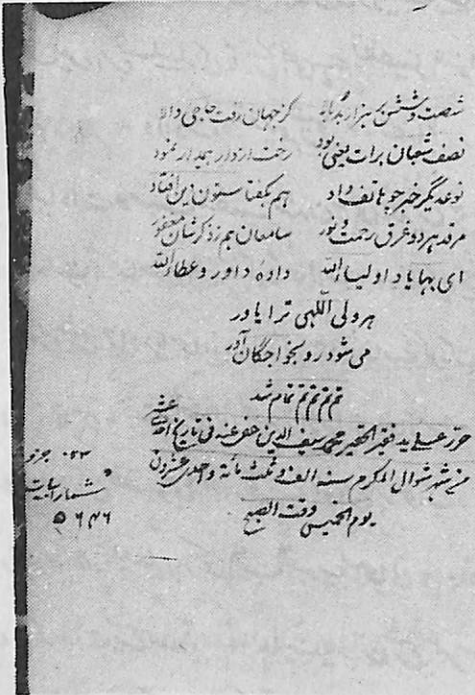 شصت و شش بر هزار بد بالا کز جهان رفت حاجی والا
نصف شعبان برات یعنی بود رخت از دار
نوعدیگر خبر چو هاتف داد هم بگفتا ستون دین افتاد
مرقد هر دو غرق رحمت و نور سامعان هم ز ذکرشان مغفور
ای بها یاد اولیاء الله دادهٔ داور و عطاء الله
هر ولی اللهی ترا یاور
می شود رو بخواجگان آور
تم تم تم تم تم تمام شد
حرر علی ید فقیر الحقیر محمد سیف الدین عفی عنه فی تاریخ احدی عشر
من شهر شوال المکرم سنه الف و ثلث مائة و احدی عشرون
یوم الخمیس وقت الصبح
شمار ابیات
۵۶۴۶